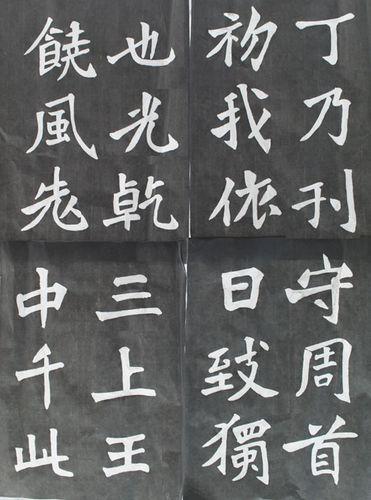 丁乃刊
初我依
也光乾
饒風
守周首
日致獨
三上王
中千此